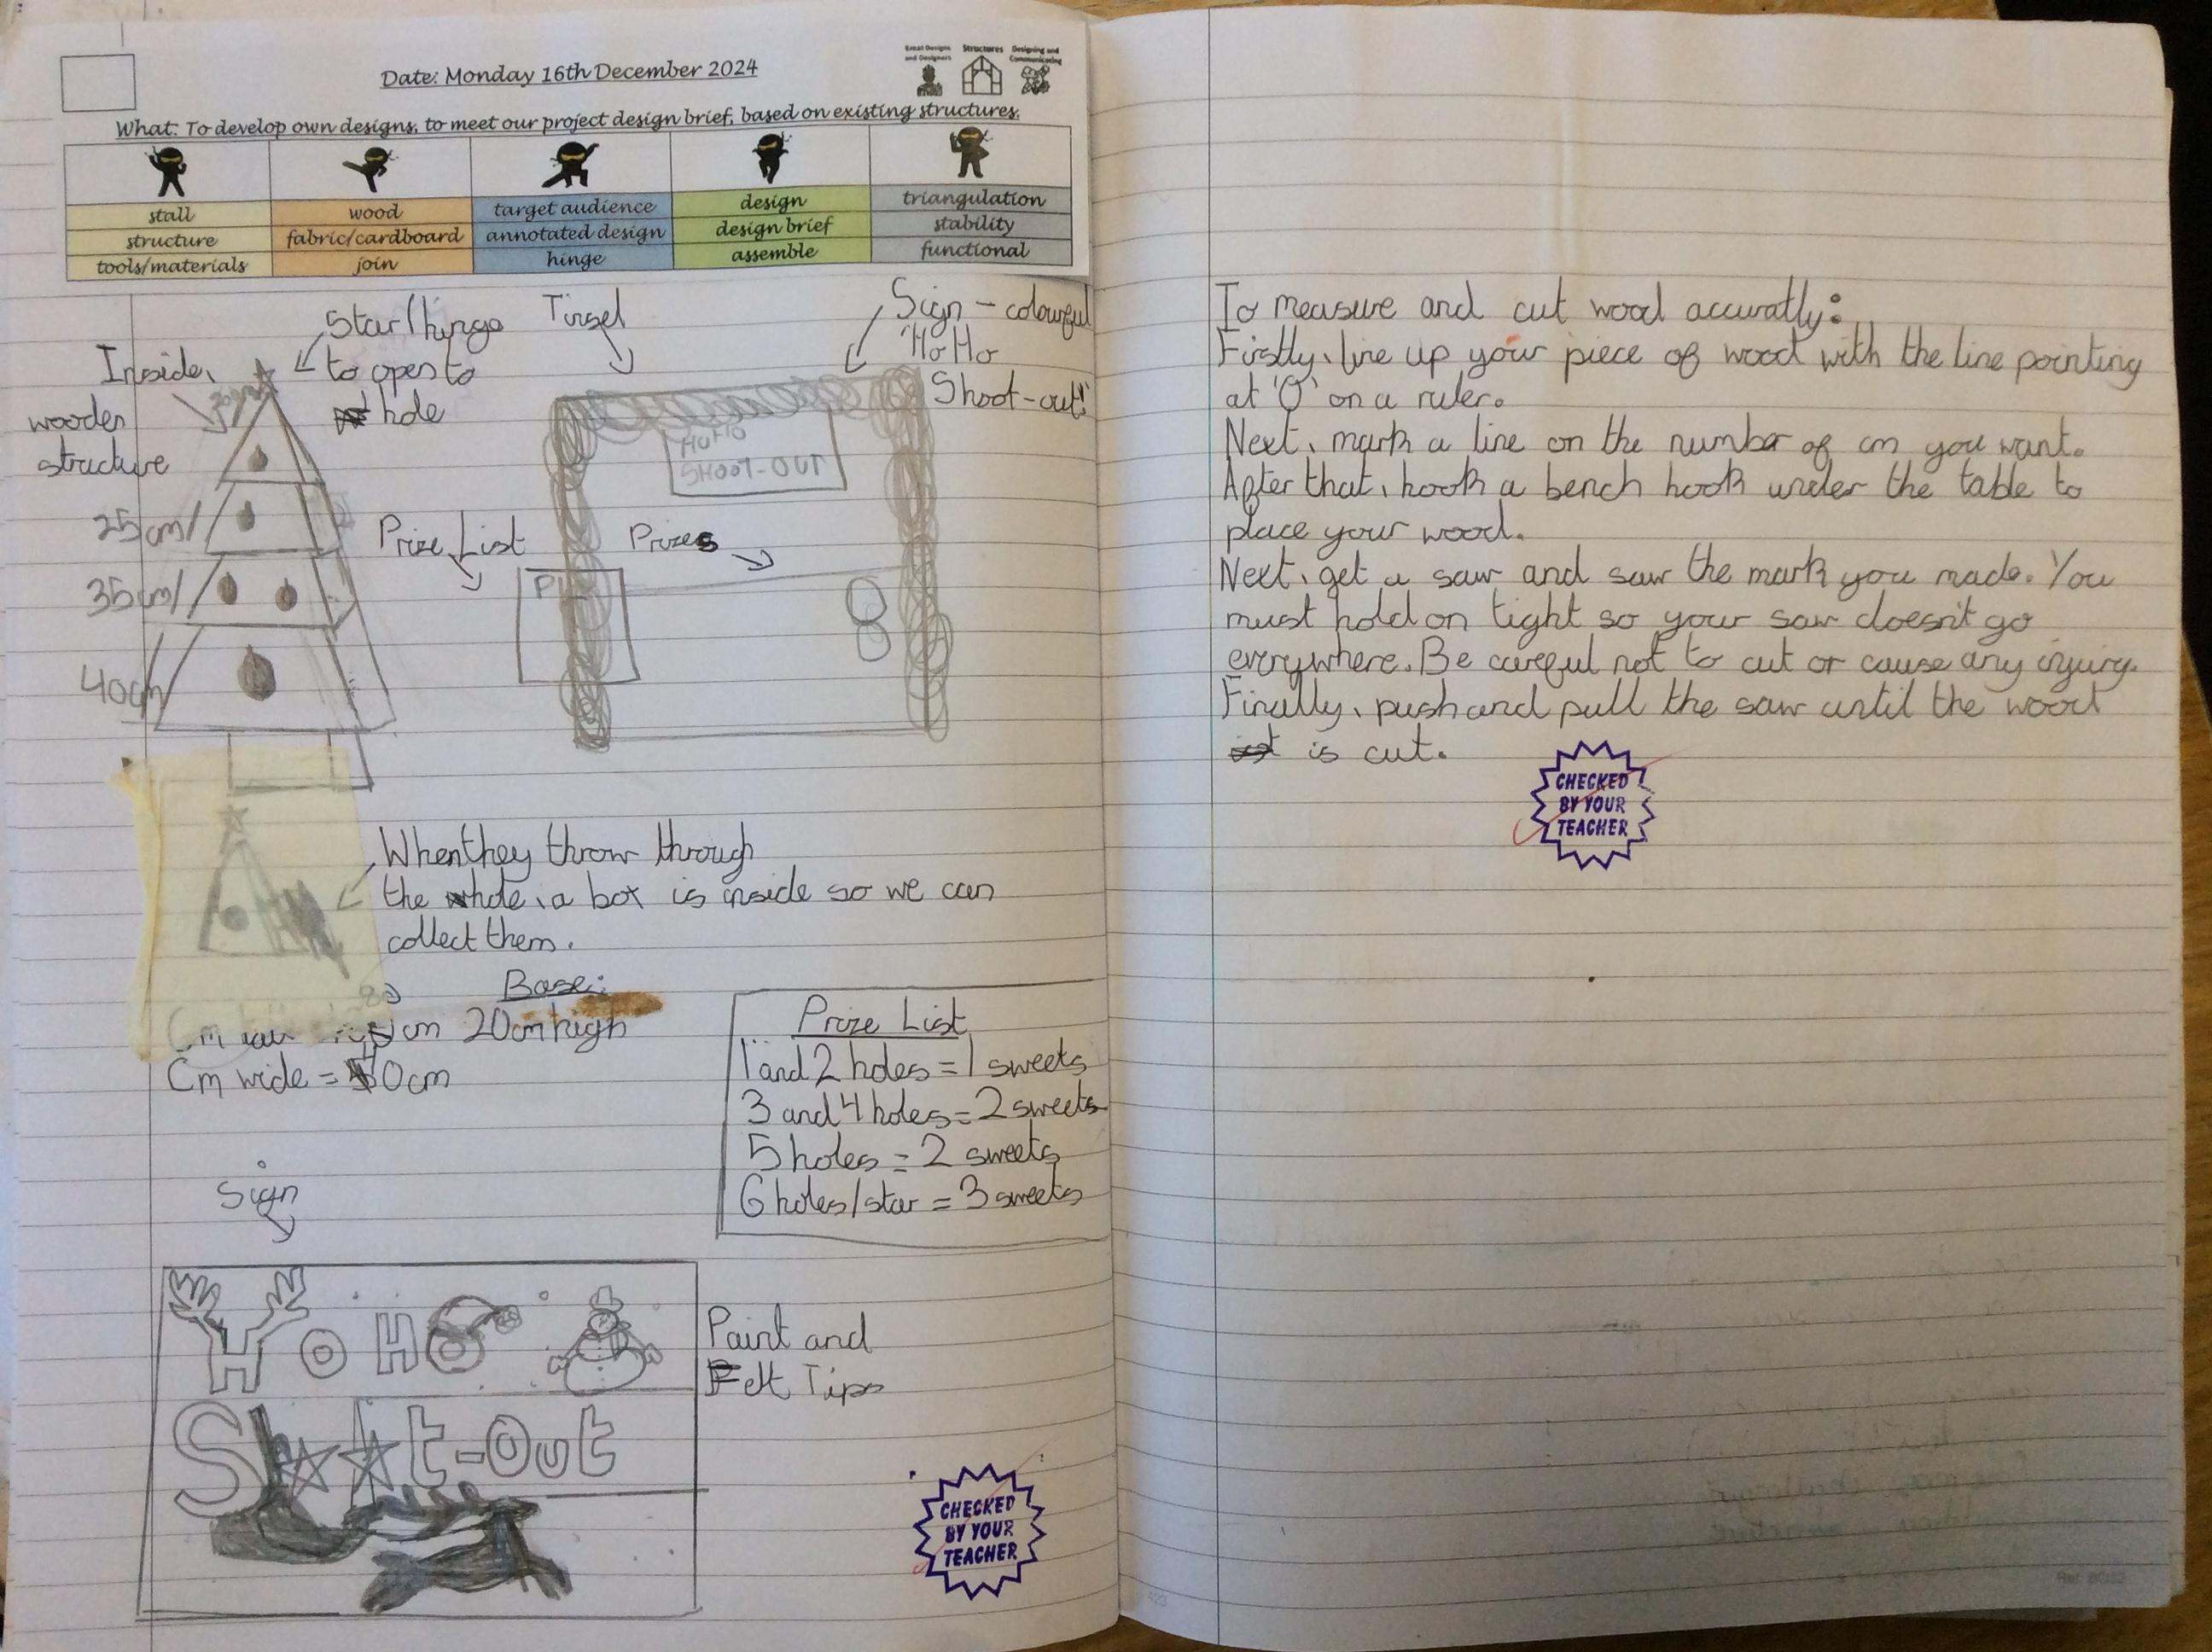 Great Designs and Designers
Structures
Designing and Communicating
Date: Monday 16th December 2024
What: To develop own designs, to meet our project design brief, based on existing structures.
stall wood target audience design triangulation
structure fabric/cardboard annotated design design brief stability
tools/materials join hinge assemble functional
Inside,
wooden
structure
Star/hinge
to open to
hole
Tinsel
Sign - colourful
'HoHo
Shoot-out!'
HoHo
SHOOT-OUT
25cm
35cm
40cm
Prize List
Prizes
PL
When they throw through
the whole, a box is inside so we can
collect them.
Base:
cm 20cm high
Cm wide = 40cm
Prize List
1 and 2 holes = 1 sweets
3 and 4 holes = 2 sweets
5 holes = 2 sweets
6 holes/star = 3 sweets
Sign
HO HO
Shoot-Out
Paint and
Felt Tips
CHECKED
BY YOUR
TEACHER
To measure and cut wood accuratly:
Firstly, line up your piece of wood with the line pointing
at '0' on a ruler.
Next, mark a line on the number of cm you want.
After that, hook a bench hook under the table to
place your wood.
Next, get a saw and saw the mark you made. You
must hold on tight so your saw doesn't go
everywhere. Be careful not to cut or cause any injury.
Finally, push and pull the saw until the wood
is cut.
CHECKED
BY YOUR
TEACHER